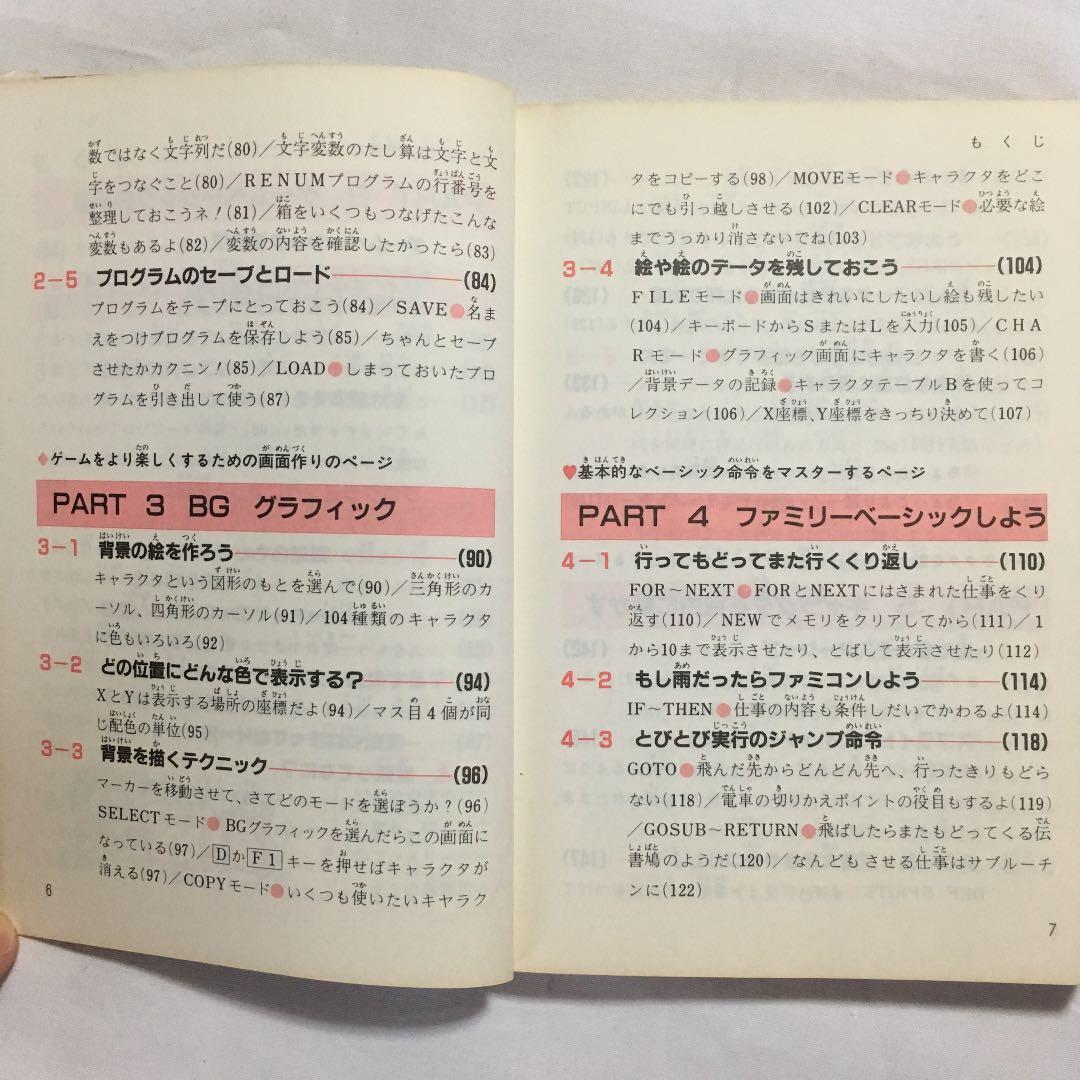 数ではなく文字列だ(80)／文字変数のたし算は文字と文
字をつなぐこと(80)／RENUMプログラムの行番号を
整理しておこうネ!(81)／箱をいくつもつなげたこんな
変数もあるよ(82)／変数の内容を確認したかったら(83)
2-5 プログラムのセーブとロード (84)
プログラムをテープにとっておこう(84)／SAVE●名ま
えをつけプログラムを保存しよう(85)／ちゃんとセーブ
させたかカクニン!(85)／LOAD●しまっておいたプロ
グラムを引き出して使う(87)
♦ゲームをより楽しくするための画面作りのページ
PART 3 BG グラフィック
3-1 背景の絵を作ろう (90)
キャラクタという図形のもとを選んで(90)／三角形のカ
ーソル、四角形のカーソル(91)／104種類のキャラクタ
に色もいろいろ(92)
3-2 どの位置にどんな色で表示する? (94)
XとYは表示する場所の座標だよ(94)／マス目4個が同
じ配色の単位(95)
3-3 背景を描くテクニック (96)
マーカーを移動させて、さてどのモードを選ぼうか?(96)
SELECTモード●BGグラフィックを選んだらこの画面に
なっている(97)／DかF1キーを押せばキャラクタが
消える(97)／COPYモード●いくつも使いたいキャラク
6
もくじ
タをコピーする(98)／MOVEモード●キャラクタをどこ
にでも引っ越しさせる(102)／CLEARモード●必要な絵
までうっかり消さないでね(103)
3-4 絵や絵のデータを残しておこう (104)
FILEモード●画面はきれいにしたいし絵も残したい
(104)／キーボードからSまたはLを入力(105)／CHA
Rモード●グラフィック画面にキャラクタを書く(106)
／背景データの記録●キャラクタテーブルBを使ってコ
レクション(106)／X座標、Y座標をきっちり決めて(107)
♥基本的なベーシック命令をマスターするページ
PART 4 ファミリーベーシックしよう
4-1 行ってもどってまた行くくり返し (110)
FOR～NEXT●FORとNEXTにはさまれた仕事をくり
返す(110)／NEWでメモリをクリアしてから(111)／1
から10まで表示させたり、とばして表示させたり(112)
4-2 もし雨だったらファミコンしよう (114)
IF～THEN●仕事の内容も条件しだいでかわるよ(114)
4-3 とびとび実行のジャンプ命令 (118)
GOTO●飛んだ先からどんどん先へ、行ったきりもどら
ない(118)／電車の切りかえポイントの役目もするよ(119)
／GOSUB～RETURN●飛ばしたらまたもどってくる伝
書鳩のようだ(120)／なんどもさせる仕事はサブルーチ
ンに(122)
7